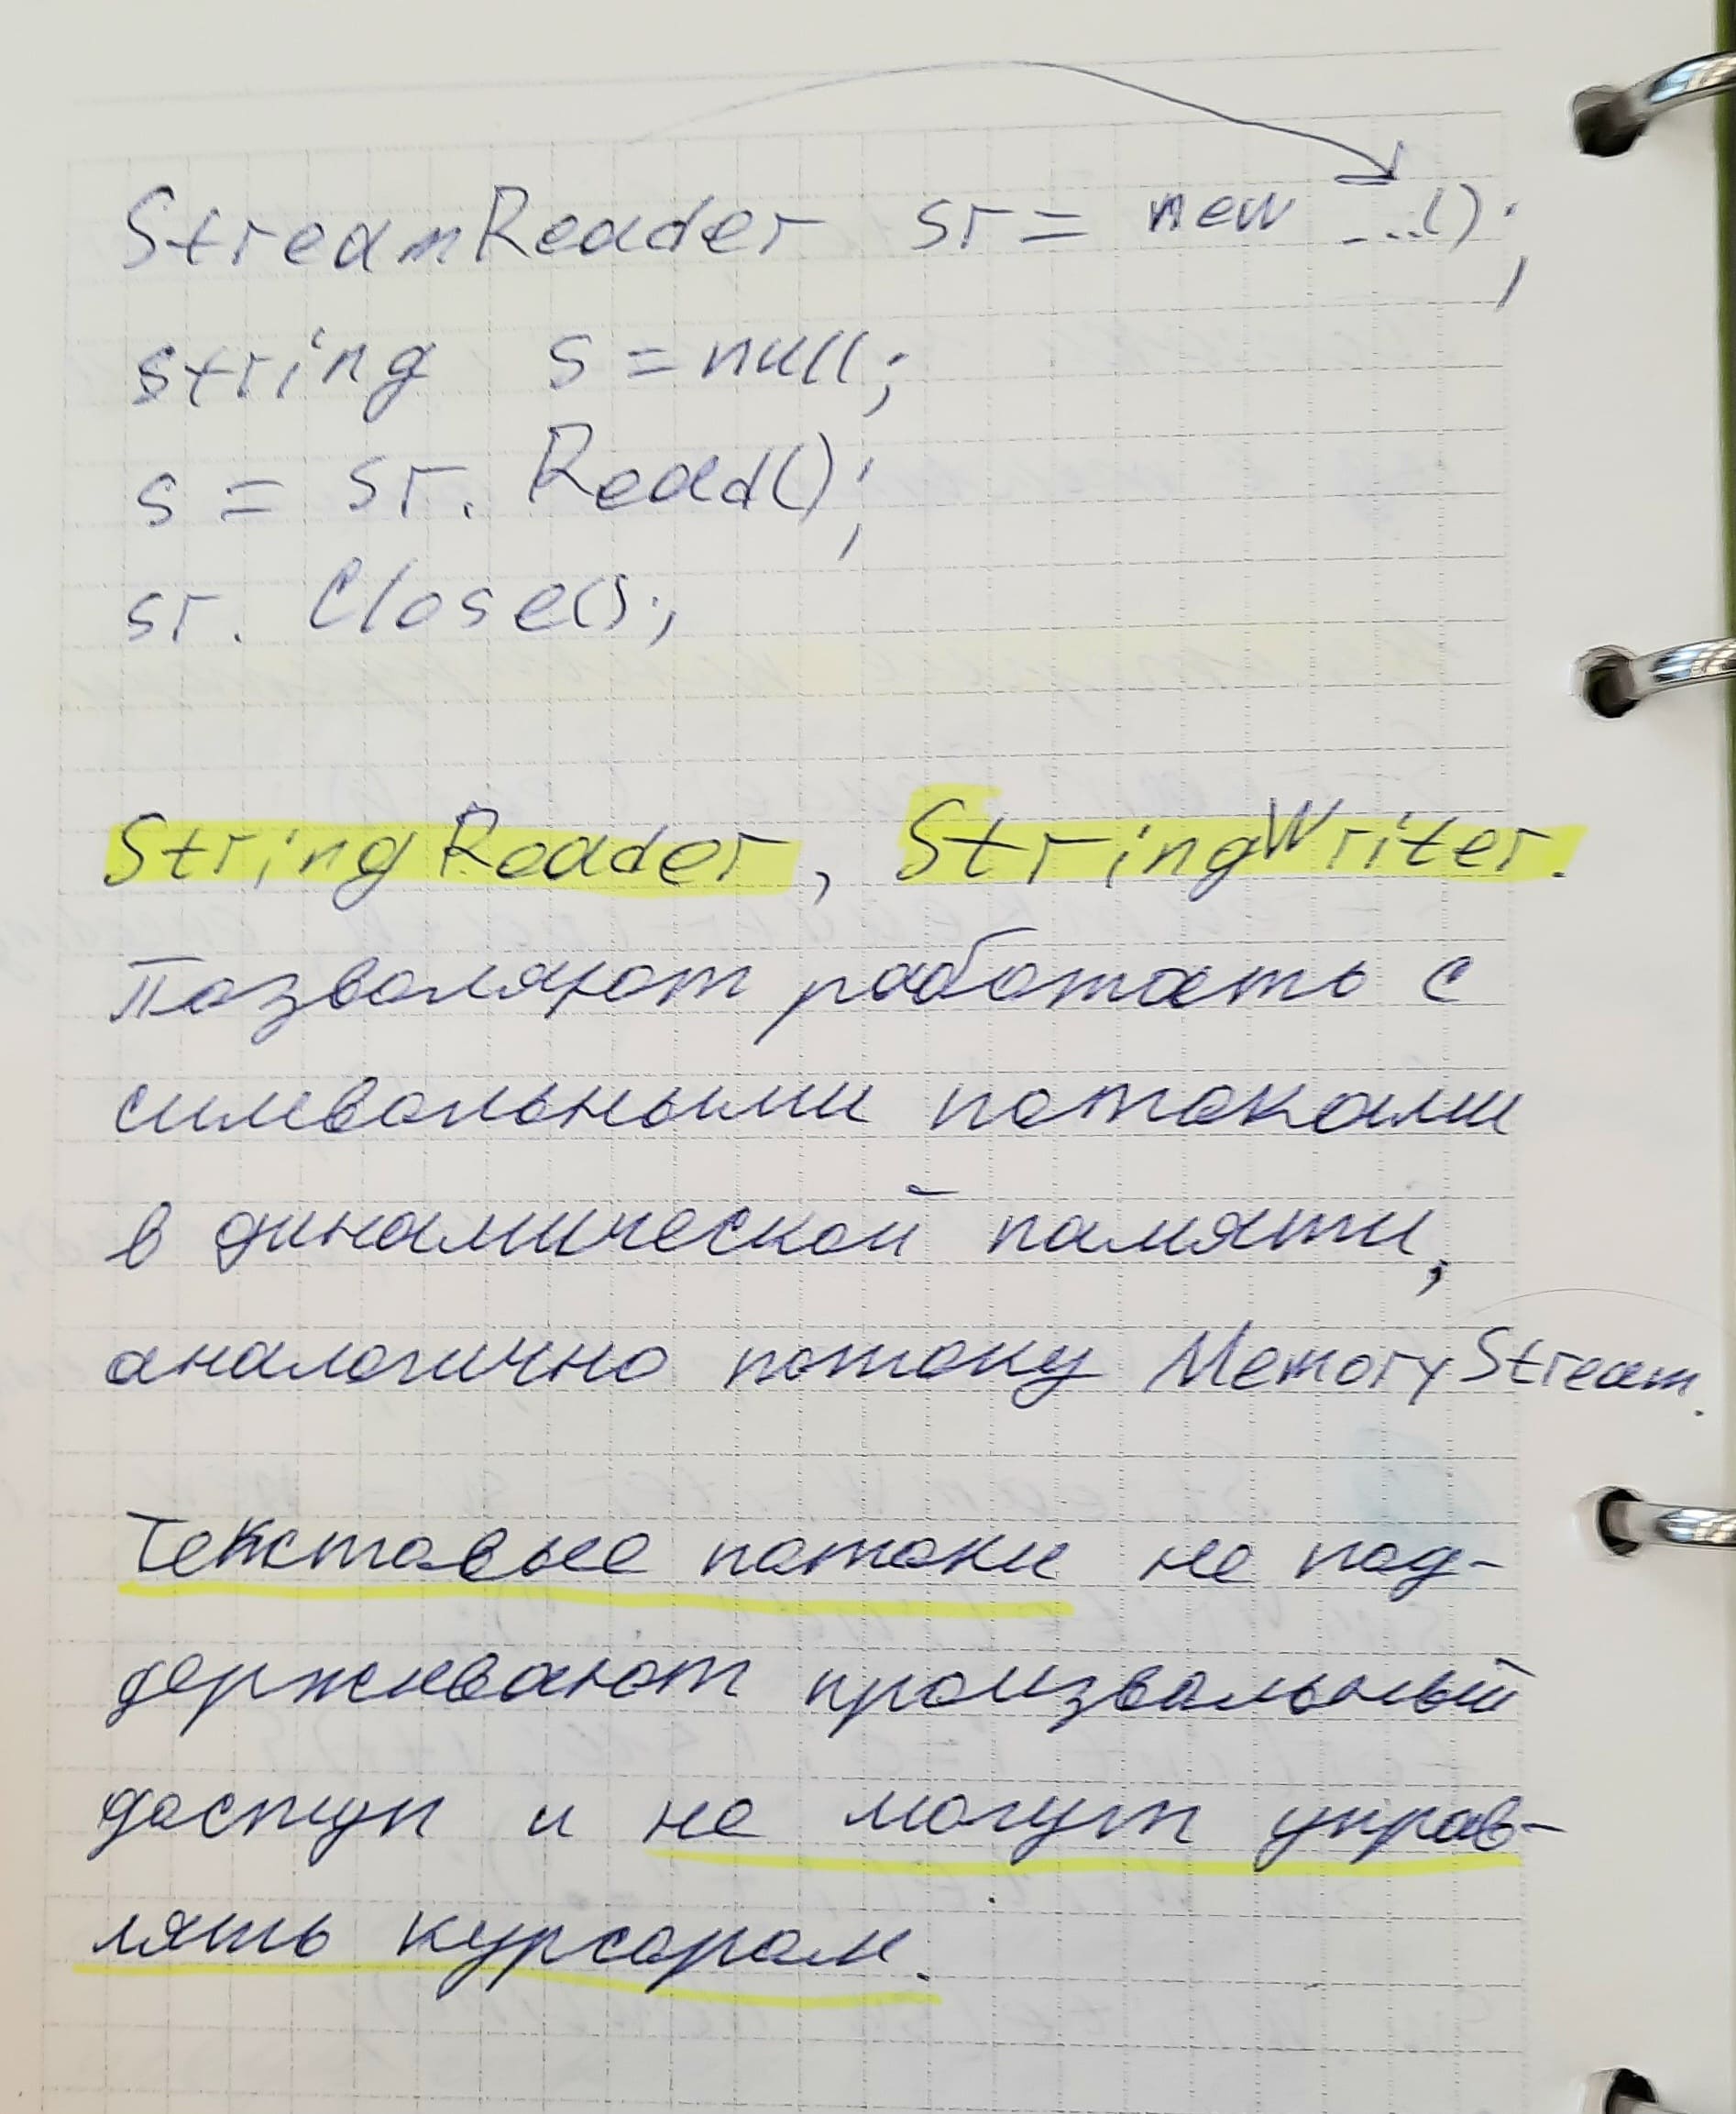 StreamReader sr = new ...();
string s = null;
s = sr. Read();
sr. Close();
StringReader, StringWriter.
Позволяют работать с
символьными потоками
в динамической памяти,
аналогично потоку MemoryStream.
Текстовые потоки не под-
держивают произвольный
доступ и не могут управ-
лять курсором.